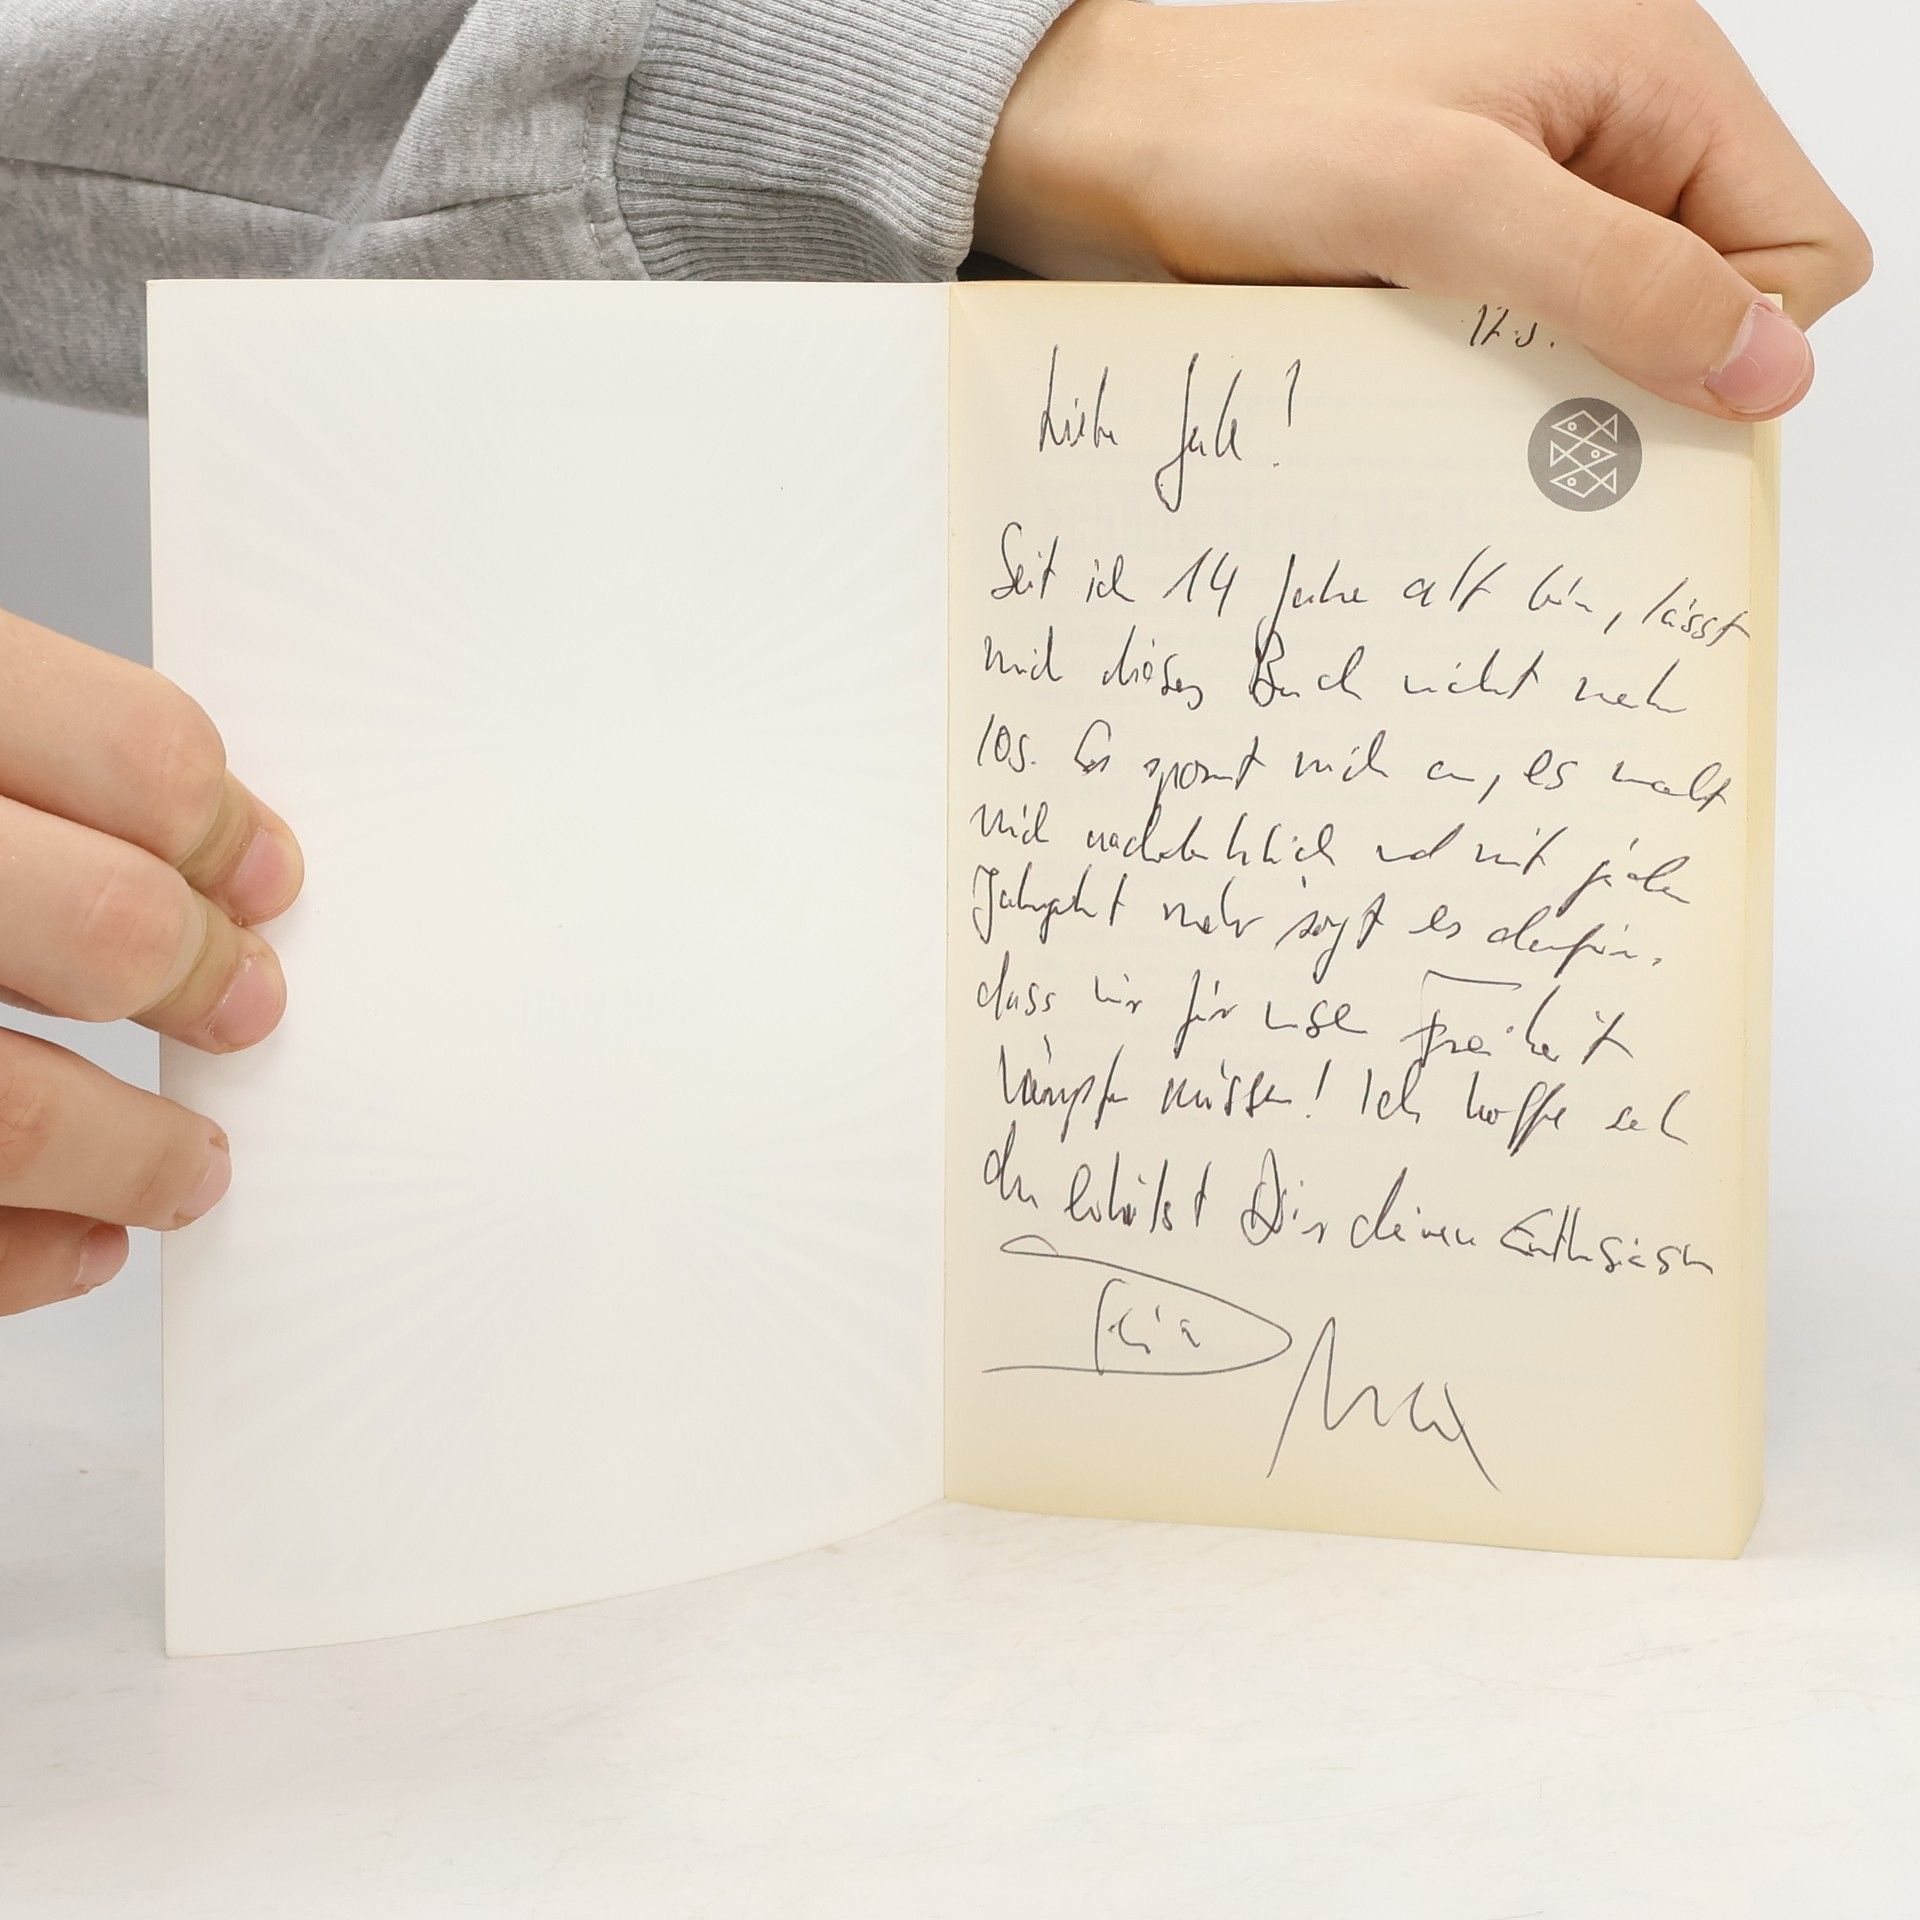 Liebe Jule!
Seit ich 14 Jahre alt bin, lässt
mich dieses Buch nicht mehr
los. Es spornt mich an, es macht
mich nachdenklich und mit jedem
Jahrzehnt mehr sorgt es dafür,
dass wir für unsere Freiheit
kämpfen müssen! Ich hoffe sehr
du erhältst Dir deinen Enthusiasm